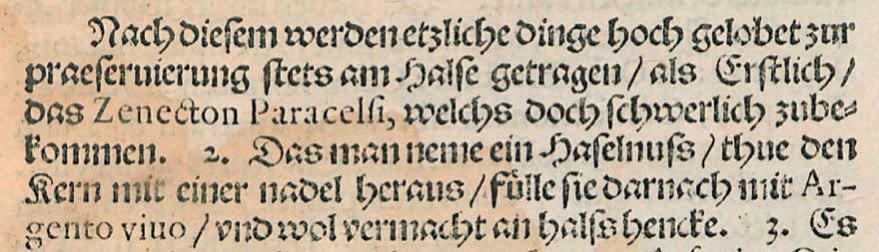 Nach diesem werden etzliche dinge hoch gelobet zur
praeseruierung stets am Halse getragen / als Erstlich /
das Zenecton Paracelsi, welchs doch schwerlich zube-
kommen. 2. Das man neme ein Haselnuss / thue den
Kern mit einer nadel heraus / fülle sie darnach mit Ar-
gento viuo / vnd wol vermacht an halss hencke. 3. Es